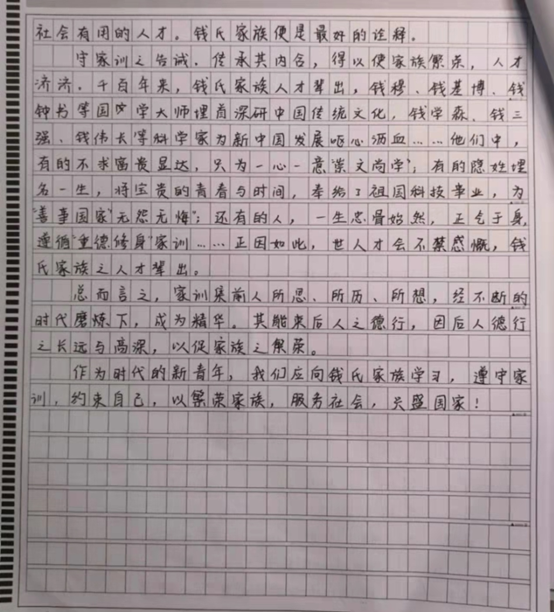 社会有用的人才。钱氏家族便是最好的诠释。
守家训之告诫，传承其内含，得以使家族繁荣，人才
济济。千百年来，钱氏家族人才辈出，钱穆、钱基博、钱
钟书等国学大师埋首深研中国传统文化，钱学森、钱三
强、钱伟长等科学家为新中国发展呕心沥血……他们中，
有的不求富贵显达，只为一心一意“崇文尚学”；有的隐姓埋
名一生，将宝贵的青春与时间，奉给了祖国科技事业，为
“善事国家”无怨无悔；还有的人，一生忠骨始然，正气于身，
遵循“重德修身”家训……正因如此，世人才会不禁感慨，钱
氏家族之人才辈出。
总而言之，家训集前人所思、所历、所想，经不断的
时代磨炼下，成为精华。其能束后人之德行，因后人德行
之长远与高深，以促家族之繁荣。
作为时代的新青年，我们应向钱氏家族学习，遵守家
训，约束自己，以繁荣家族，服务社会，兴盛国家！